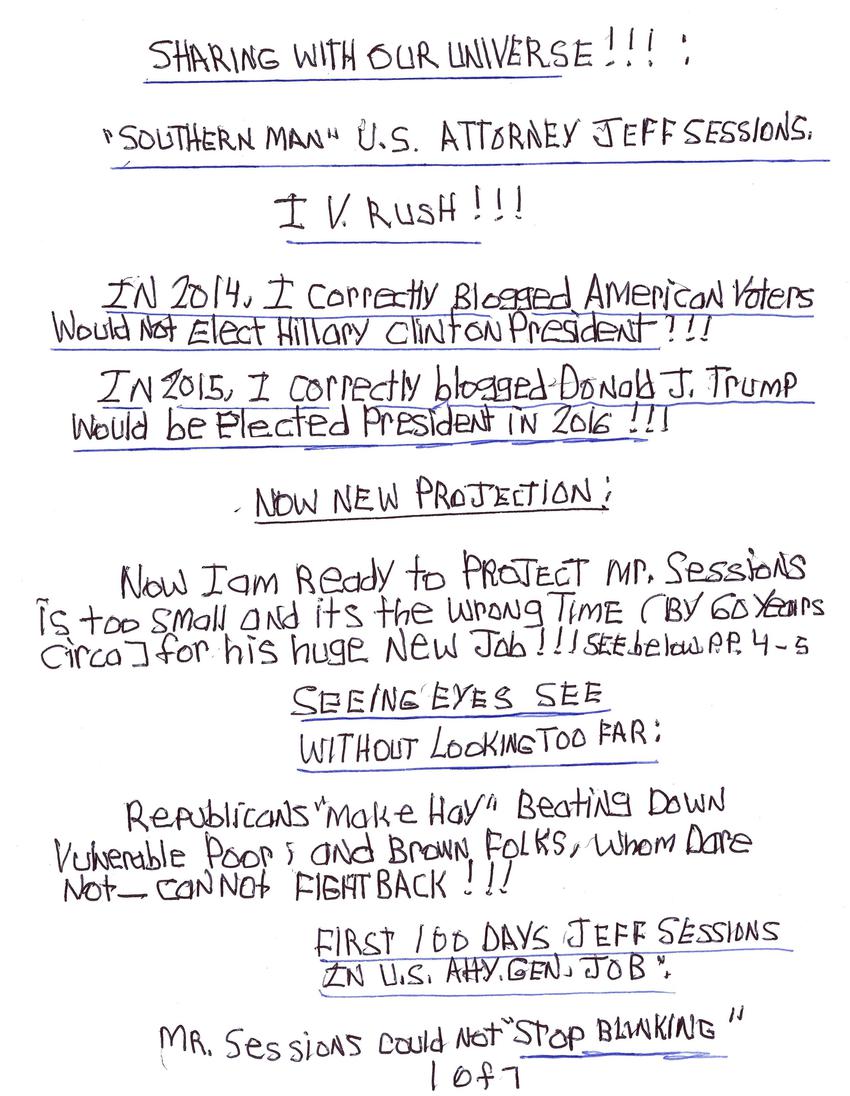 SHARING WITH OUR UNIVERSE!!! :
"SOUTHERN MAN" U.S. ATTORNEY JEFF SESSIONS.
I V. RUSH!!!
IN 2014, I correctly Blogged American Voters
Would Not Elect Hillary Clinton President!!!
IN 2015, I correctly blogged Donald J. Trump
Would be Elected President in 2016 !!!
NOW NEW PROJECTION:
Now I am Ready to PROJECT Mr. Sessions
is too small and its the wrong Time (BY 60 Years
Circa] for his huge New Job!!! SEE below PP. 4-5
SEEING EYES SEE
WITHOUT LOOKING TOO FAR:
Republicans "Make Hay" Beating Down
Vulnerable Poor; and Brown Folks, Whom Dare
Not—CANNot FIGHT BACK!!!
FIRST 100 DAYS JEFF SESSIONS
IN U.S. Atty. GEN. JOB":
MR. Sessions could Not "STOP BLINKING"
1 of 7